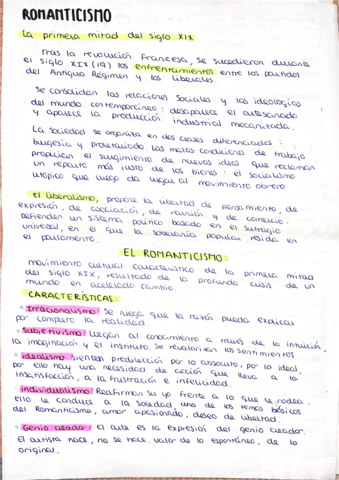 ROMANTICISMO
La primera mitad del siglo XIX
Tras la revolución Francesa, se sucedieron durante
el siglo XIX (19) los enfrentamientos entre los partidos
del Antiguo Régimen y los liberales.
Se consolidan las relaciones sociales y las ideologías
del mundo contemporáneo: desaparece el artesanado
y aparece la producción industrial mecanizada.
La sociedad se organiza en dos clases diferenciadas:
burguesía y proletariado. Las malas condiciones de trabajo
propician el surgimiento de nuevas ideas que reclaman
un reparto más justo de los bienes: el socialismo
utópico que luego da lugar al movimiento obrero
El liberalismo, propone la libertad de pensamiento, de
expresión, de asociación, de reunión y de comercio.
Defienden un sistema político basado en el sufragio
universal, en el que la soberanía popular resida en
el parlamento.
EL ROMANTICISMO:
movimiento cultural característico de la primera mitad
del siglo XIX, resultado de la profunda crisis de un
mundo en acelerado cambio.
CARACTERÍSTICAS:
Irracionalismo: Se niega que la razón pueda explicar
por completo la realidad.
Subjetivismo: Llegan al conocimiento a través de la intuición,
la imaginación y el instituto. Se revalorizan los sentimientos
idealismo: Sienten predilección por lo absoluto, por lo ideal,
por ello hay una necesidad de acción que lleva a la
insatisfacción, a la frustración e infelicidad.
individualismo: Reafirman su yo frente a lo que le rodea.
Ello le conduce a la soledad uno de los temas básicos
del Romanticismo, amor apasionado, deseo de libertad.
Genio creador: El arte es la expresión del genio creador.
El artista nace, no se hace. valor de lo espontáneo, de lo
original.